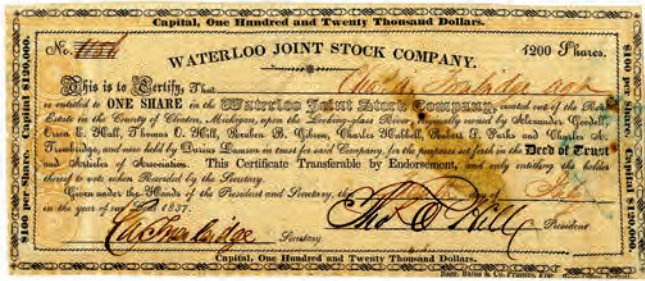 Capital, One Hundred and Twenty Thousand Dollars.
No. 1186
WATERLOO JOINT STOCK COMPANY.
1200 Shares.
This is to Certify, That Cha's A. Trowbridge
is entitled to ONE SHARE in the Waterloo Joint Stock Company, created out of the Real
Estate in the County of Clinton, Michigan, upon the Looking-glass River, formerly owned by Alexander Goodell,
Orson E. Hall, Thomas O. Hill, Reuben B. Gibson, Charles Hubbell, Robert S. Parks and Charles A.
Trowbridge, and now held by Darius Lamson in trust for said Company, for the purposes set forth in the Deed of Trust
and Articles of Association. This Certificate Transferable by Endorsement, and only entitling the holder
thereof to vote when Recorded by the Secretary.
Given under the Hands of the President and Secretary, the
in the year of our Lord 1837.
C A Trowbridge Secretary Tho's O Hill President.
Capital, One Hundred and Twenty Thousand Dollars.
& Co. Printers,
$100 per Share. Capital $120,000.
$100 per Share. Capital $120,000.